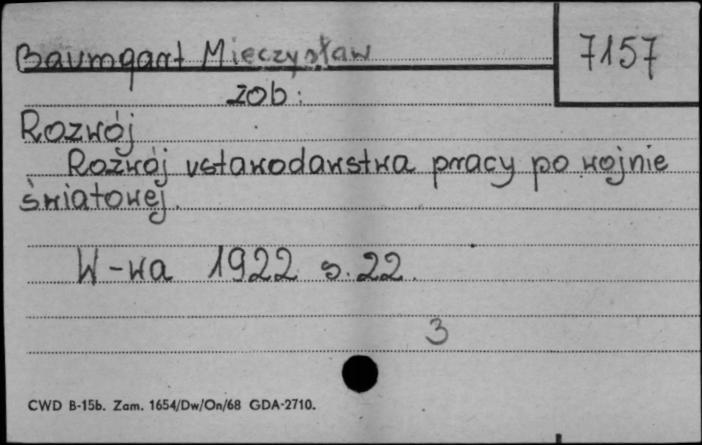 Baumgart Mieczysław
7157
zob:
Rozwój
Rozwój ustawodawstwa pracy po wojnie
światowej.
W-wa 1922 s. 22.
3
CWD B-15b. Zam. 1654/Dw/On/68 GDA-2710.